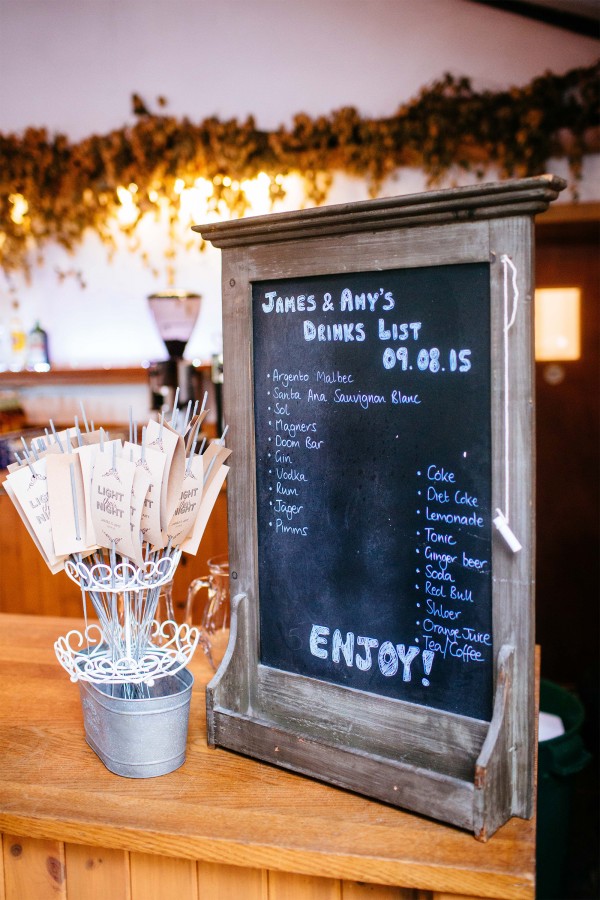 JAMES & AMY'S
DRINKS LIST
09.08.15
• Argento Malbec
• Santa Ana Sauvignon Blanc
• Sol
• Magners
• Doom Bar
• Gin
• Vodka
• Rum
• Jager
• Pimms
• Coke
• Diet Coke
• Lemonade
• Tonic
• Ginger beer
• Soda
• Red Bull
• Shloer
• Orange Juice
• Tea/Coffee
ENJOY!
LIGHT
NIGHT